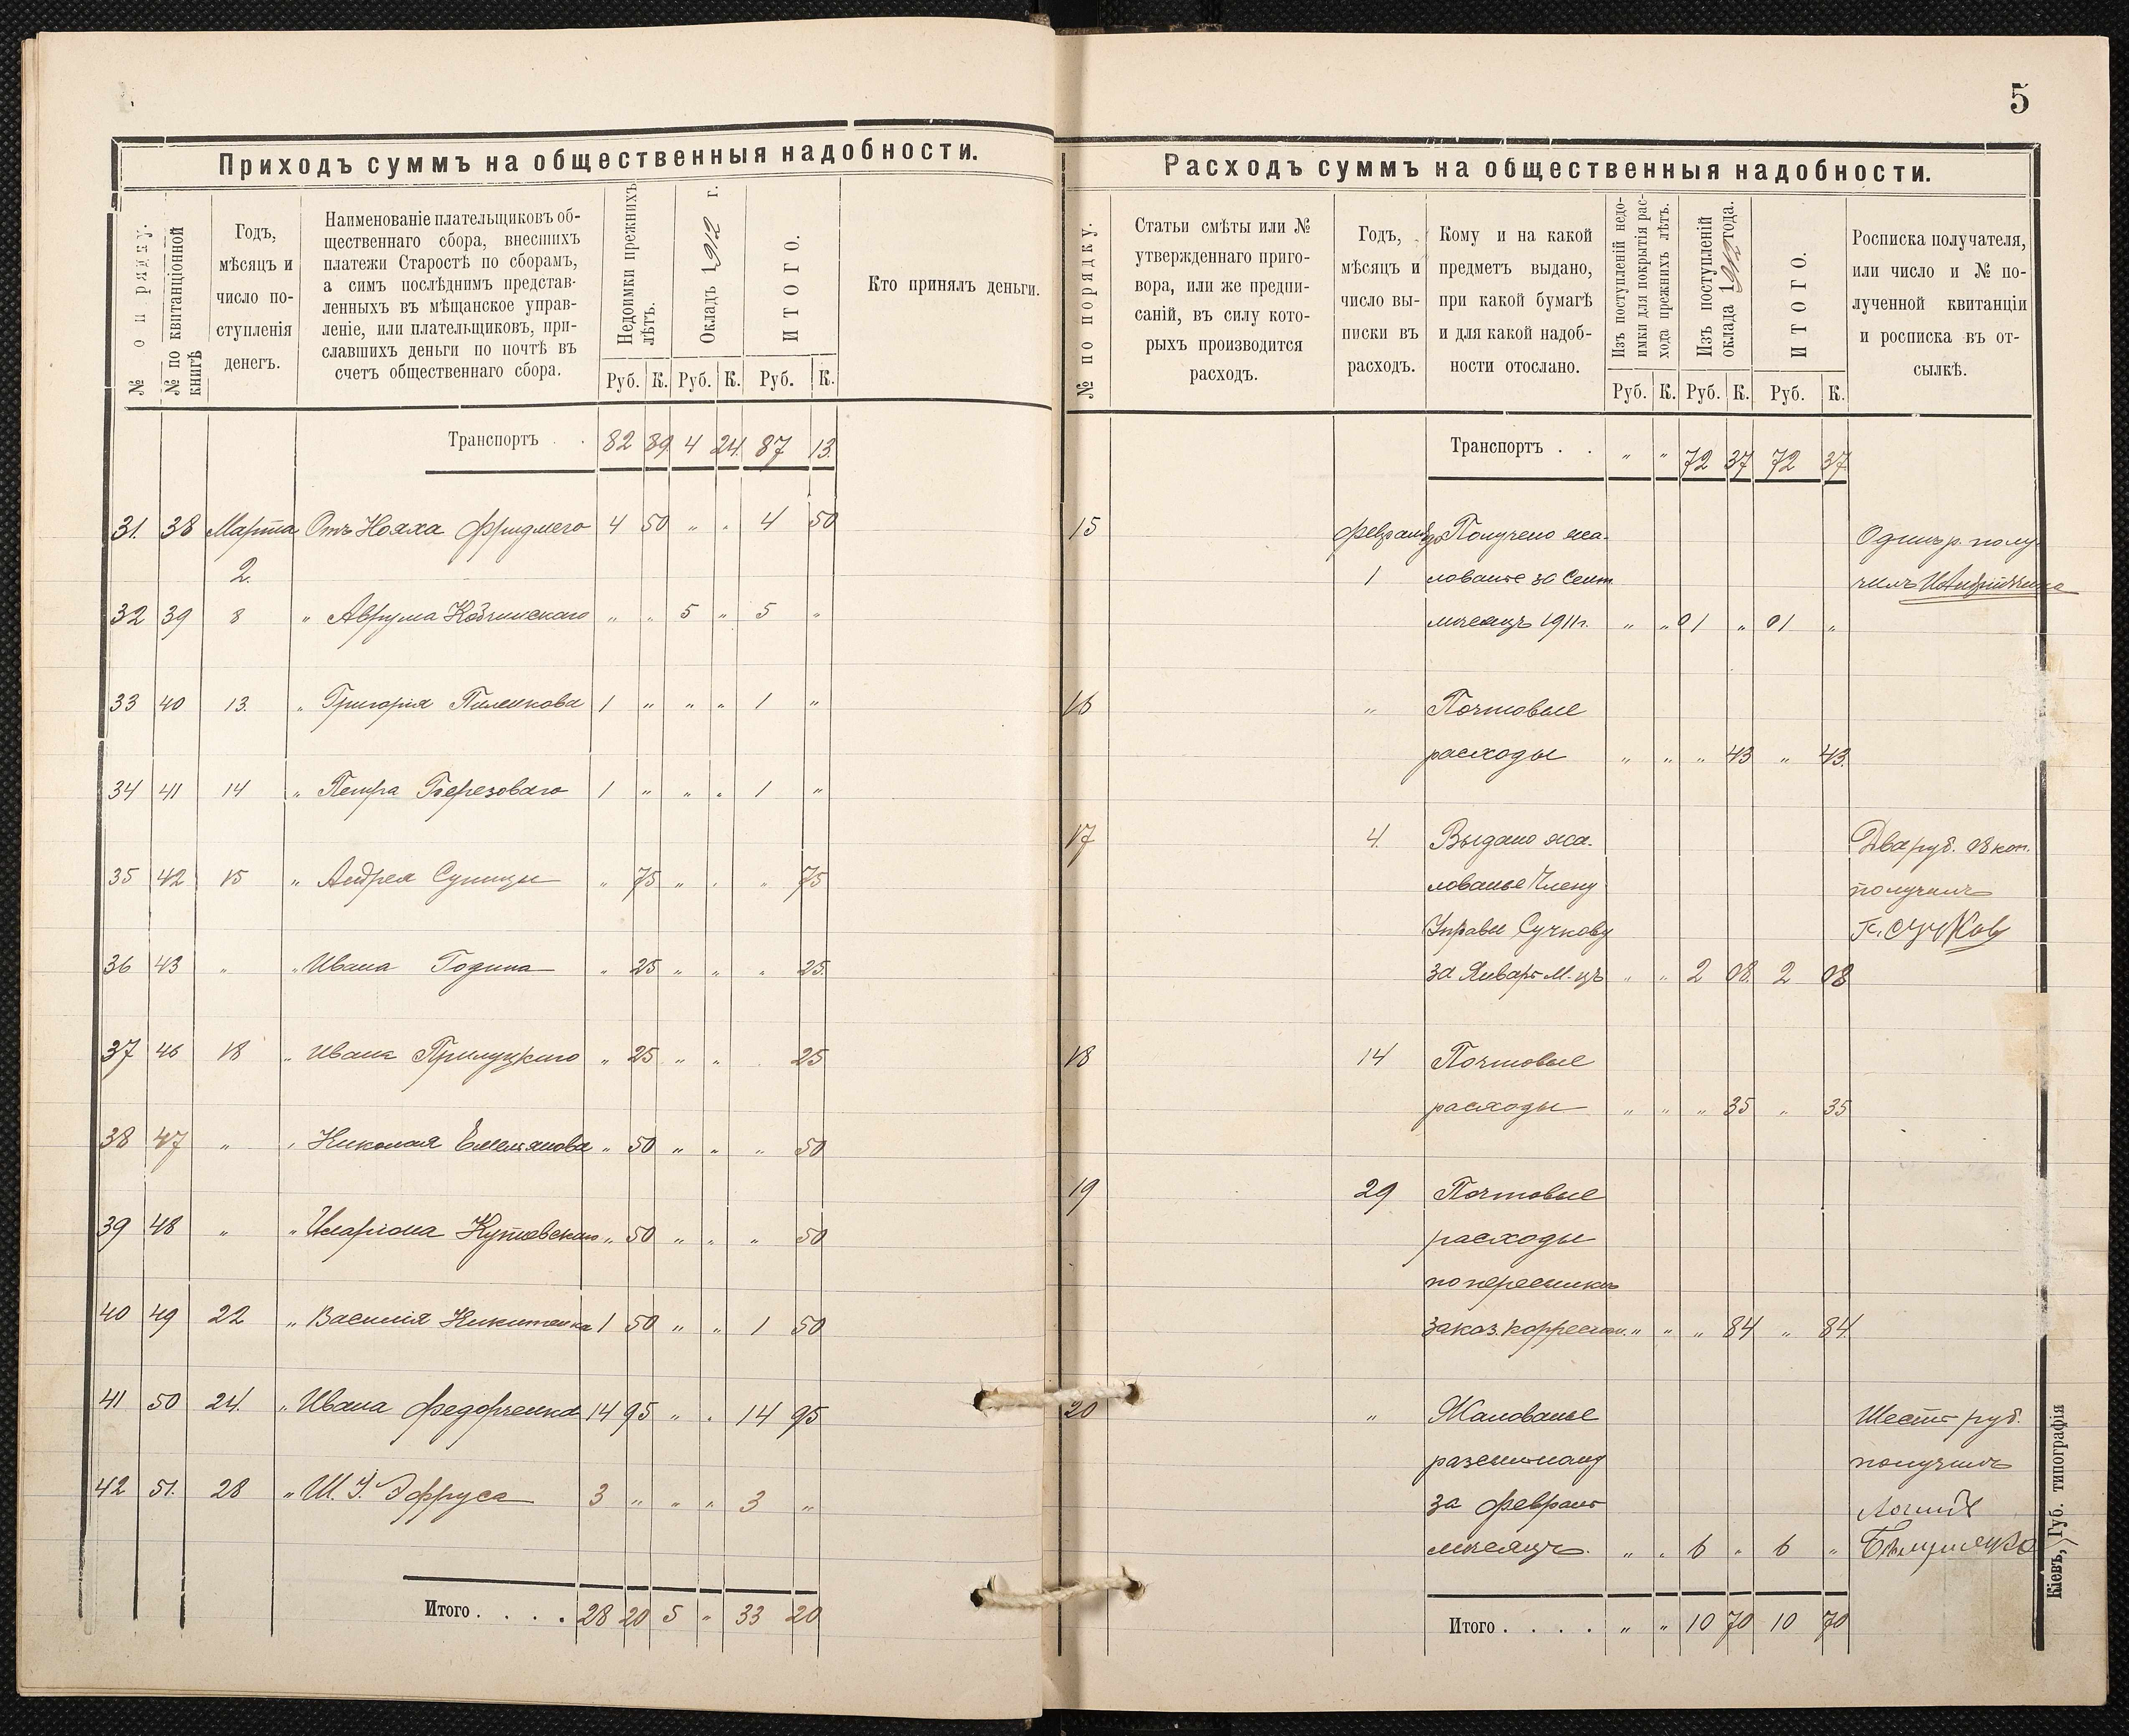 5
Приходъ суммъ на общественныя надобности.
№ по квитанціонной книгѣ
Годъ,
мѣсяцъ и
число по-
ступленія
денегъ.
Наименованіе плательщиковъ об-
щественнаго сбора, внесшихъ
платежи Старостѣ по сборамъ,
а симъ послѣднимъ представ-
ленныхъ въ мѣщанское управ-
леніе, или плательщиковъ, при-
славшихъ деньги по почтѣ въ
счетъ общественнаго сбора.
Недоимки прежнихъ
лѣтъ.
Окладъ 1912 г.
ИТОГО.
Кто принялъ деньги.
Руб. К. Руб. К. Руб. К.
Транспортъ . . 82 89 4 24 87 13
31. 38 Марта Отъ Нояха Фридмого 4 50 " " 4 50
2.
32 39 8 " Аврума " " 5 " 5 "
33 40 13. " Григорія 1 " " " 1 "
34 41 14 " Петра Березоваго 1 " " " 1 "
35 42 15 " Андрея Супицы " 75 " " " 75
36 43 " " Ивана Година " 25 " " " 25
37 46 18 " Ивана Прилуцкаго " 25 " " 25
38 47 " " Николая Емельянова " 50 " " " 50
39 48 " " Иларіона " 50 " " " 50
40 49 22 " Василія Никитенка 1 50 " " 1 50
41 50 24. " Ивана Федорченка 14 95 " " 14 95
42 51. 28 " Ш. І. Эфруса 3 " " " 3 "
Итого . . . . 28 20 5 " 33 20
Расходъ суммъ на общественныя надобности.
№ по порядку.
Статьи смѣты или №
утвержденнаго приго-
вора, или же предпи-
саній, въ силу кото-
рыхъ производится
расходъ.
Годъ,
мѣсяцъ и
число вы-
писки въ
расходъ.
Кому и на какой
предметъ выдано,
при какой бумагѣ
и для какой надоб-
ности отослано.
Изъ поступленій недо-
имки для покрытія рас-
хода прежнихъ лѣтъ.
Изъ поступленій
оклада 1912 года.
ИТОГО.
Росписка получателя,
или число и № по-
лученной квитанціи
и росписка въ от-
сылкѣ.
Руб. К. Руб. К. Руб. К.
Транспортъ . . " " 72 37 72 37
15 Февраля Получено жа- Одинъ р. полу-
1 лованье за Сент. чилъ
мѣсяцъ 1911 г. " " 01 " 01 "
16 " Почтовые
расходы " " " 43 " 43.
17 4. Выдано жа- Два руб. 08 коп.
лованье Члену получилъ
Управы Сучкову Г. Сучков
за Январь М-цъ " " 2 08. 2 08
18 14 Почтовые
расходы " " " 35 " 35
19 29 Почтовые
расходы
по пересылкѣ
заказ. корреспон. " " " 84 " 84.
20 " Жалованье Шесть руб.
разсыльному получилъ
за Февраль
мѣсяцъ. " " 6 " 6 "
Итого . . . . " " 10 70 10 70
Кіевъ, Губ. типографія